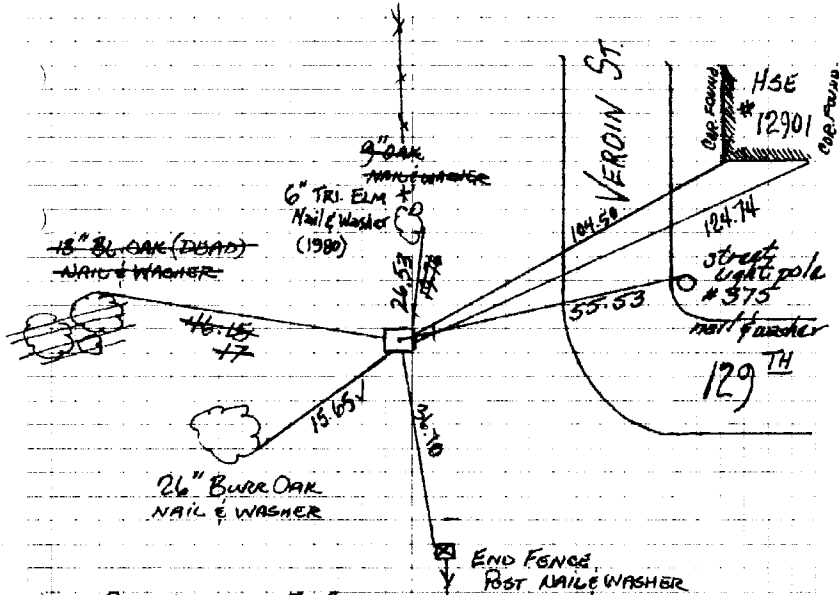 VERDIN ST.
COR. FOUND
HSE
# 12901
COR. FOUND.
9" OAK
NAIL & WASHER
6" TRI. ELM
Nail & Washer
(1980)
18" BL. OAK (DEAD)
NAIL & WASHER
104.50
124.74
26.53
street
light pole
# 375
nail & washer
55.53
46.15
17
129TH
15.65
26" BURR OAK
NAIL & WASHER
END FENCE
POST NAIL & WASHER